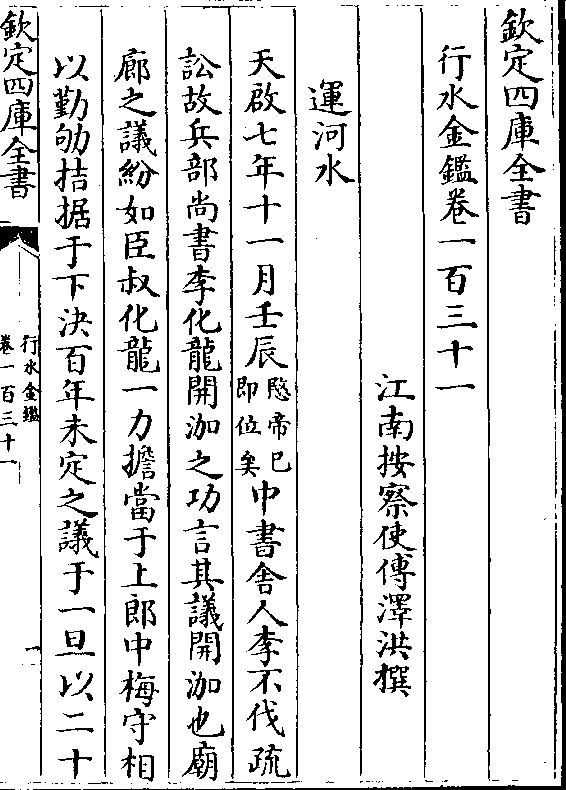 欽定四庫全書
行水金鑑卷一百三十一
江南按察使傅澤洪撰
運河水
天啟七年十一月壬辰愍帝巳即位矣中書舍人李不伐疏
訟故兵部尚書李化龍開泇之功言其議開泇也廟
廊之議紛如臣叔化龍一力擔當于上郎中梅守相
以勤劬拮据于下決百年未定之議于一旦以二十
欽定四庫全書
行水金鑑
卷一百三十一
一